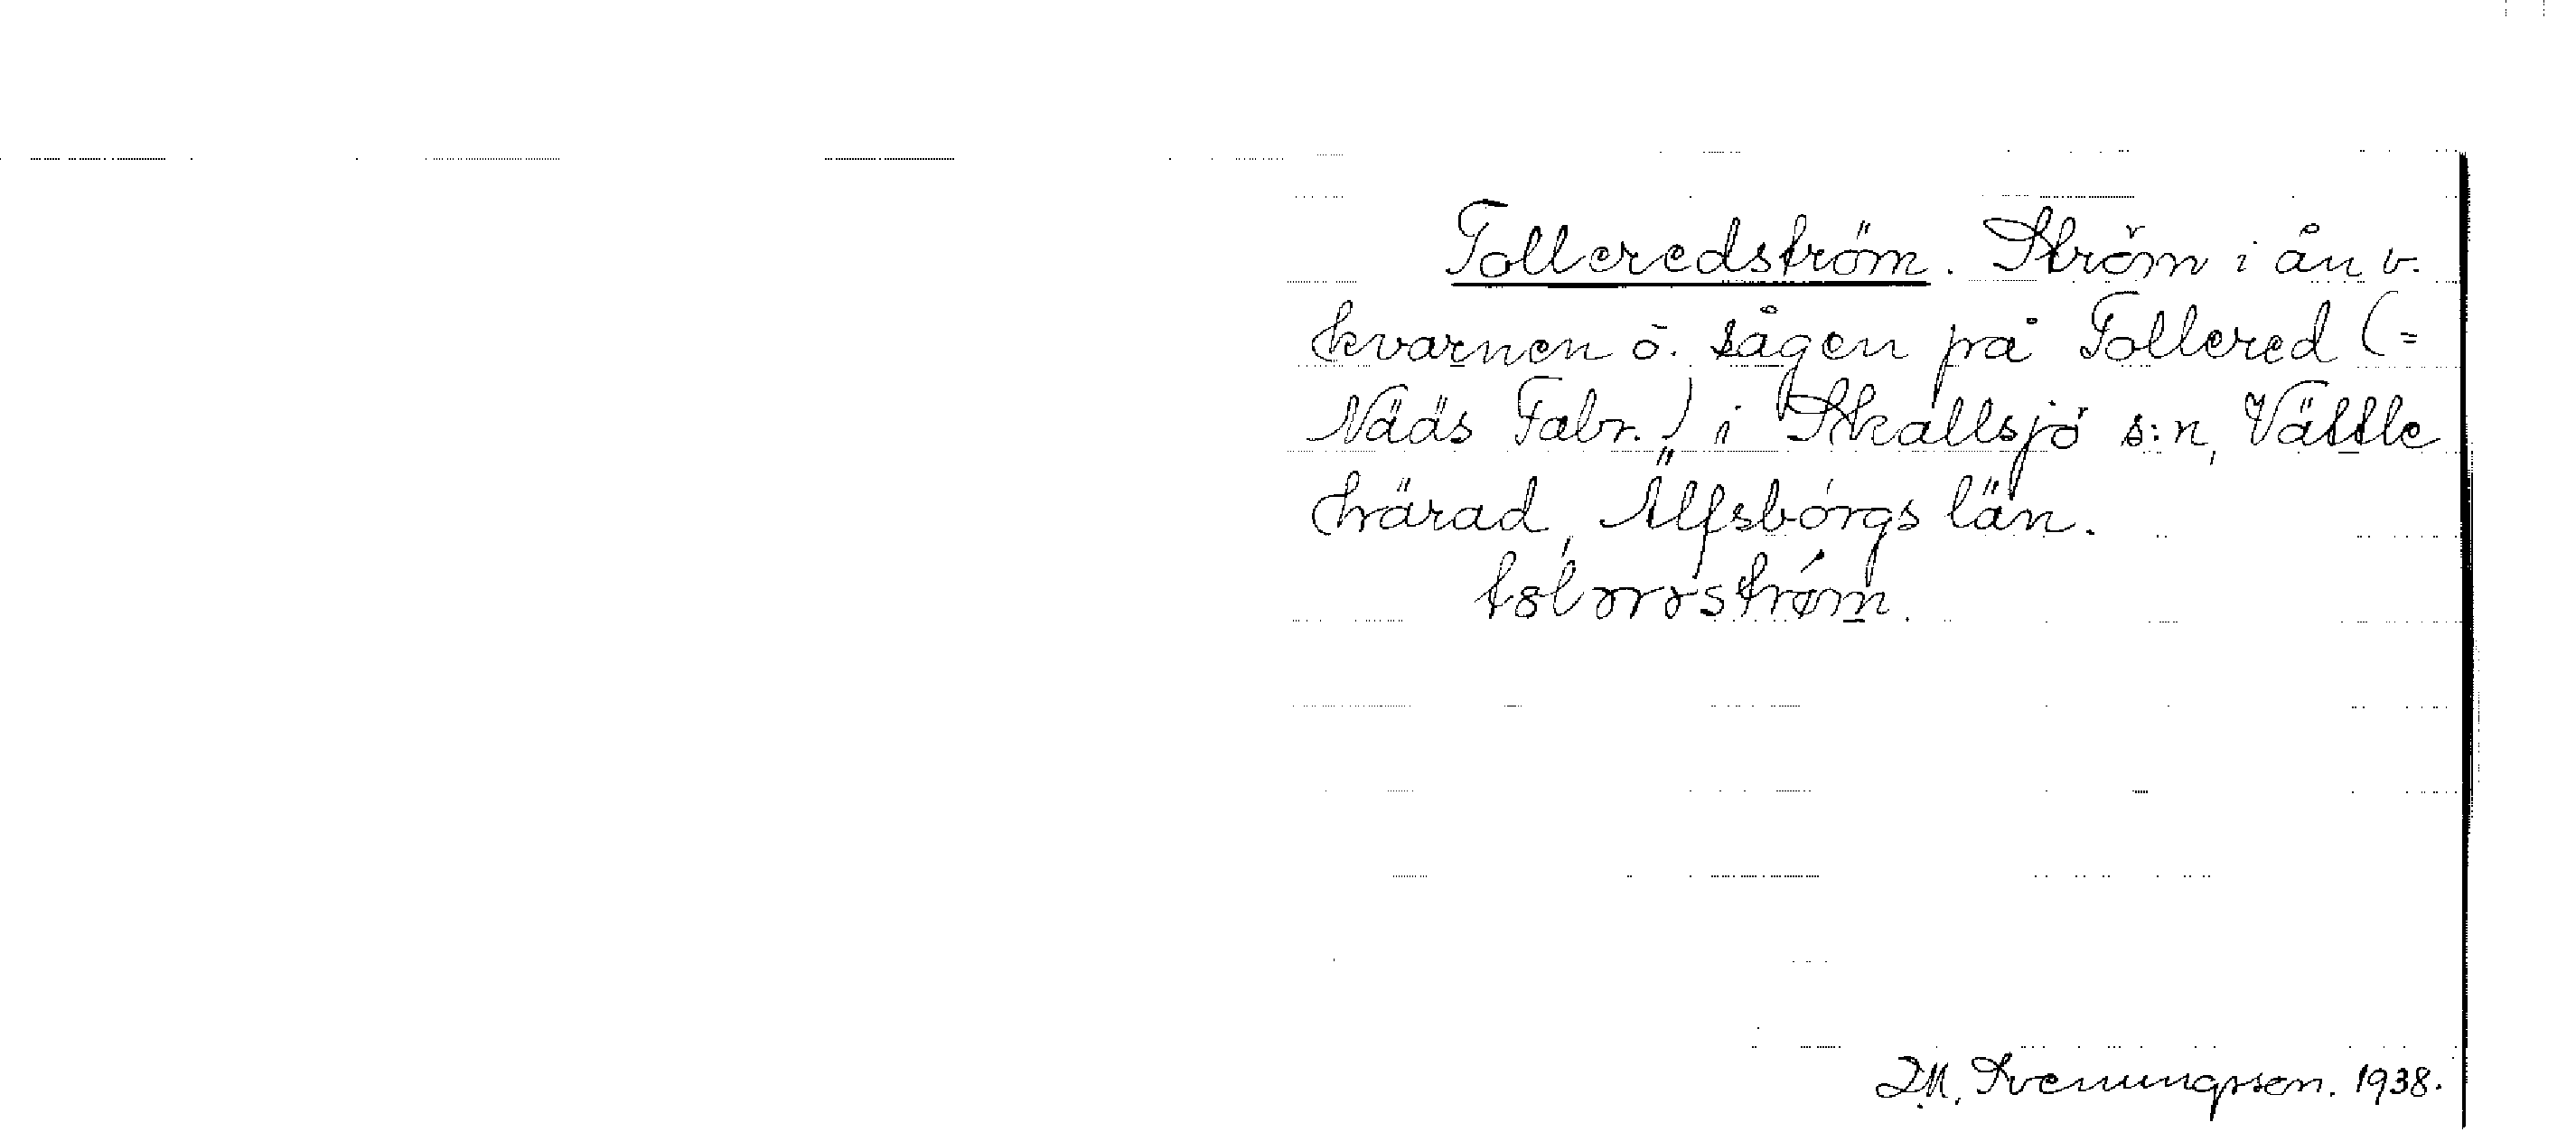 Tolleredström. Ström i ån v.
kvarnen o. sågen på Tollered (=
Nääs Fabr.) i Skallsjö s:n, Vättle
härad, Älfsborgs län.
D.M. Svenungsson. 1938.